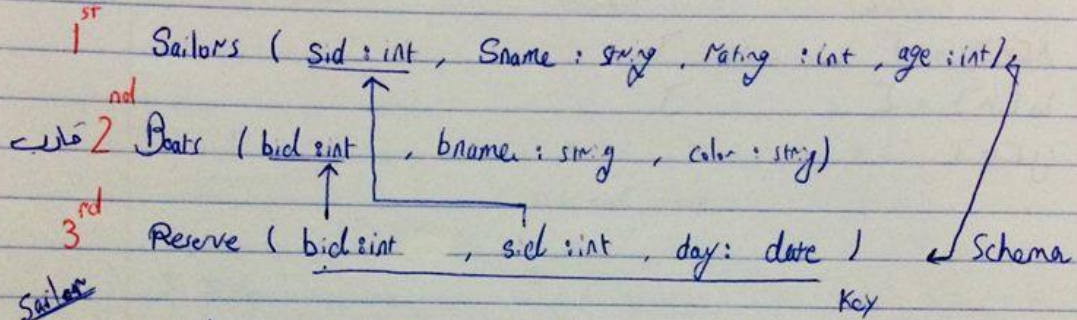 1st Sailors ( sid : int , Sname : string , rating : int , age : int )
قارب 2nd Boats ( bid : int , bname : string , color : string )
3rd Reserve ( bid : int , sid : int , day : date ) Schema
Sailor Key